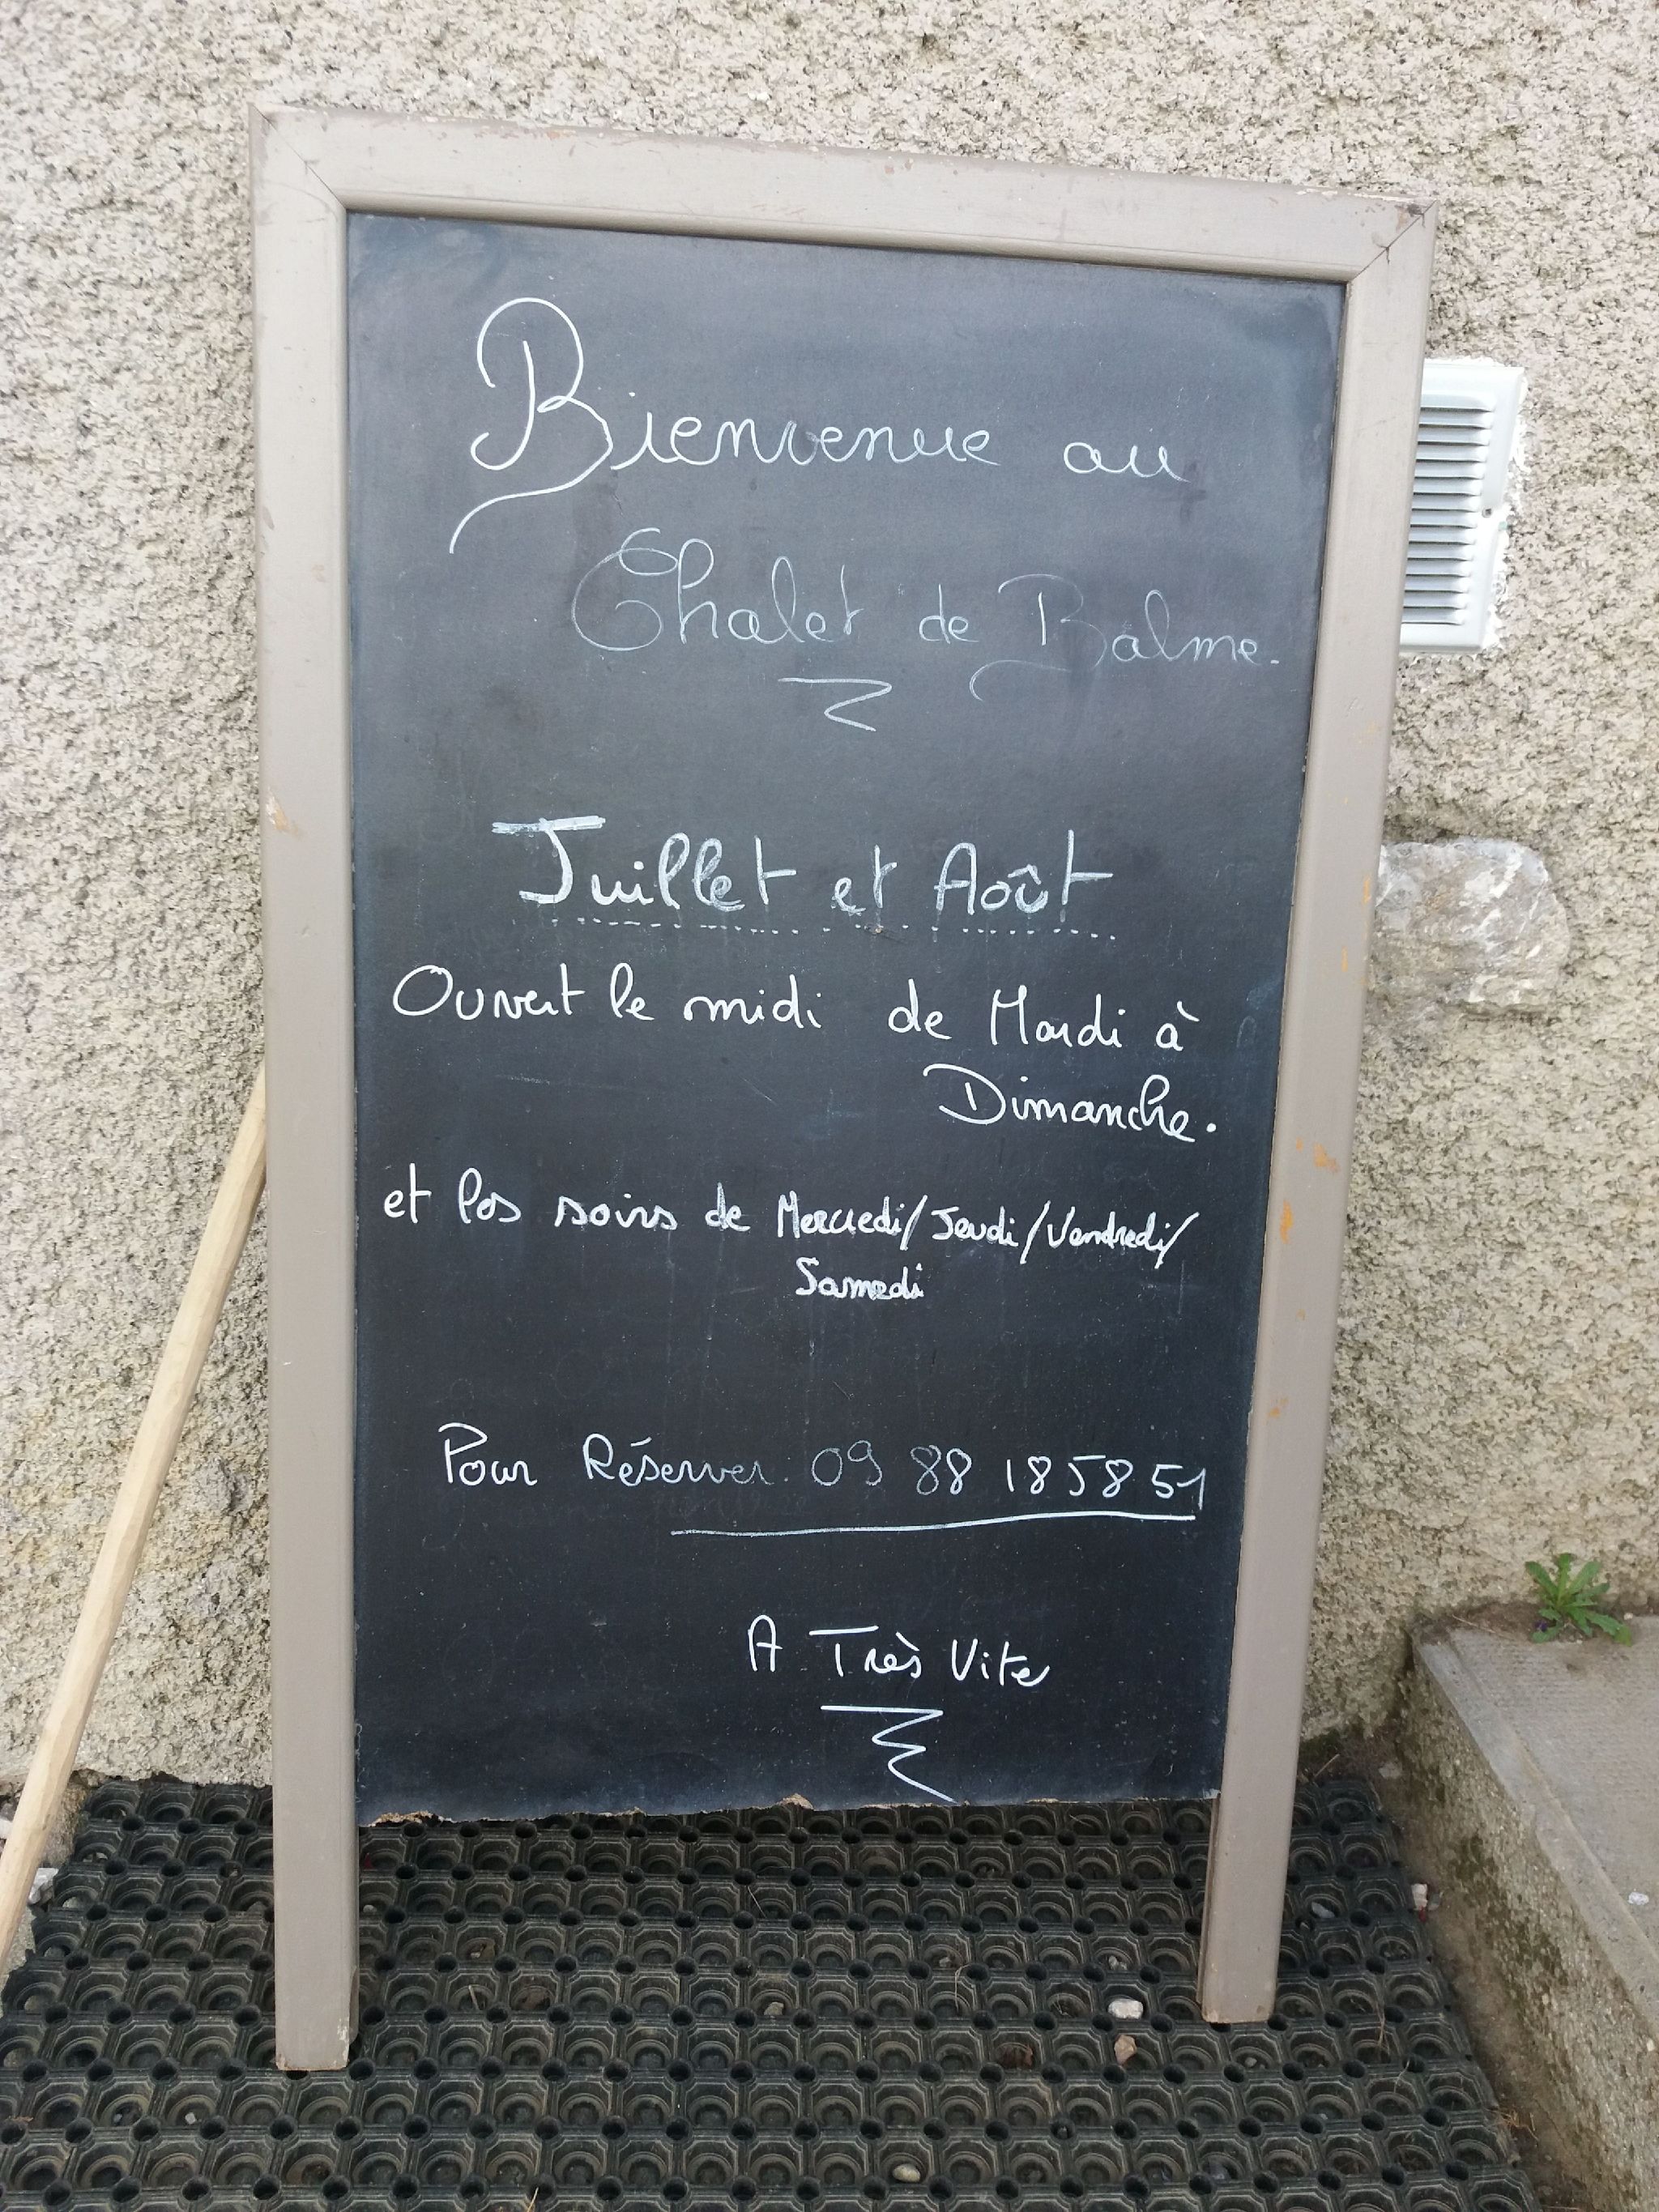 Bienvenue au
Chalet de Balme.
Juillet et Août
Ouvert le midi de Mardi à
Dimanche.
et les soirs de Mercredi/Jeudi/Vendredi/
Samedi
Pour Réserver. 09 88 18 58 51
A Très Vite